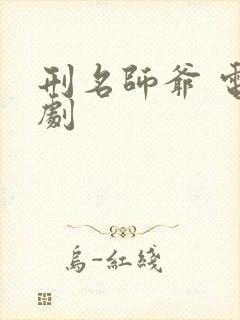 刑名師爺 電
劇
烏-紅綫